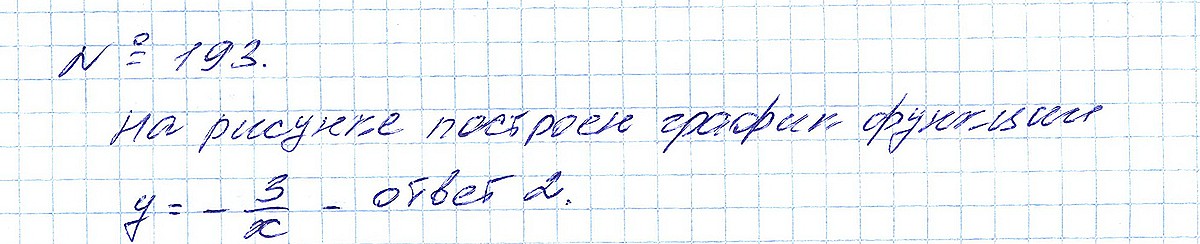 № 193.
На рисунке построен график функции
y = - 3/x - ответ 2.